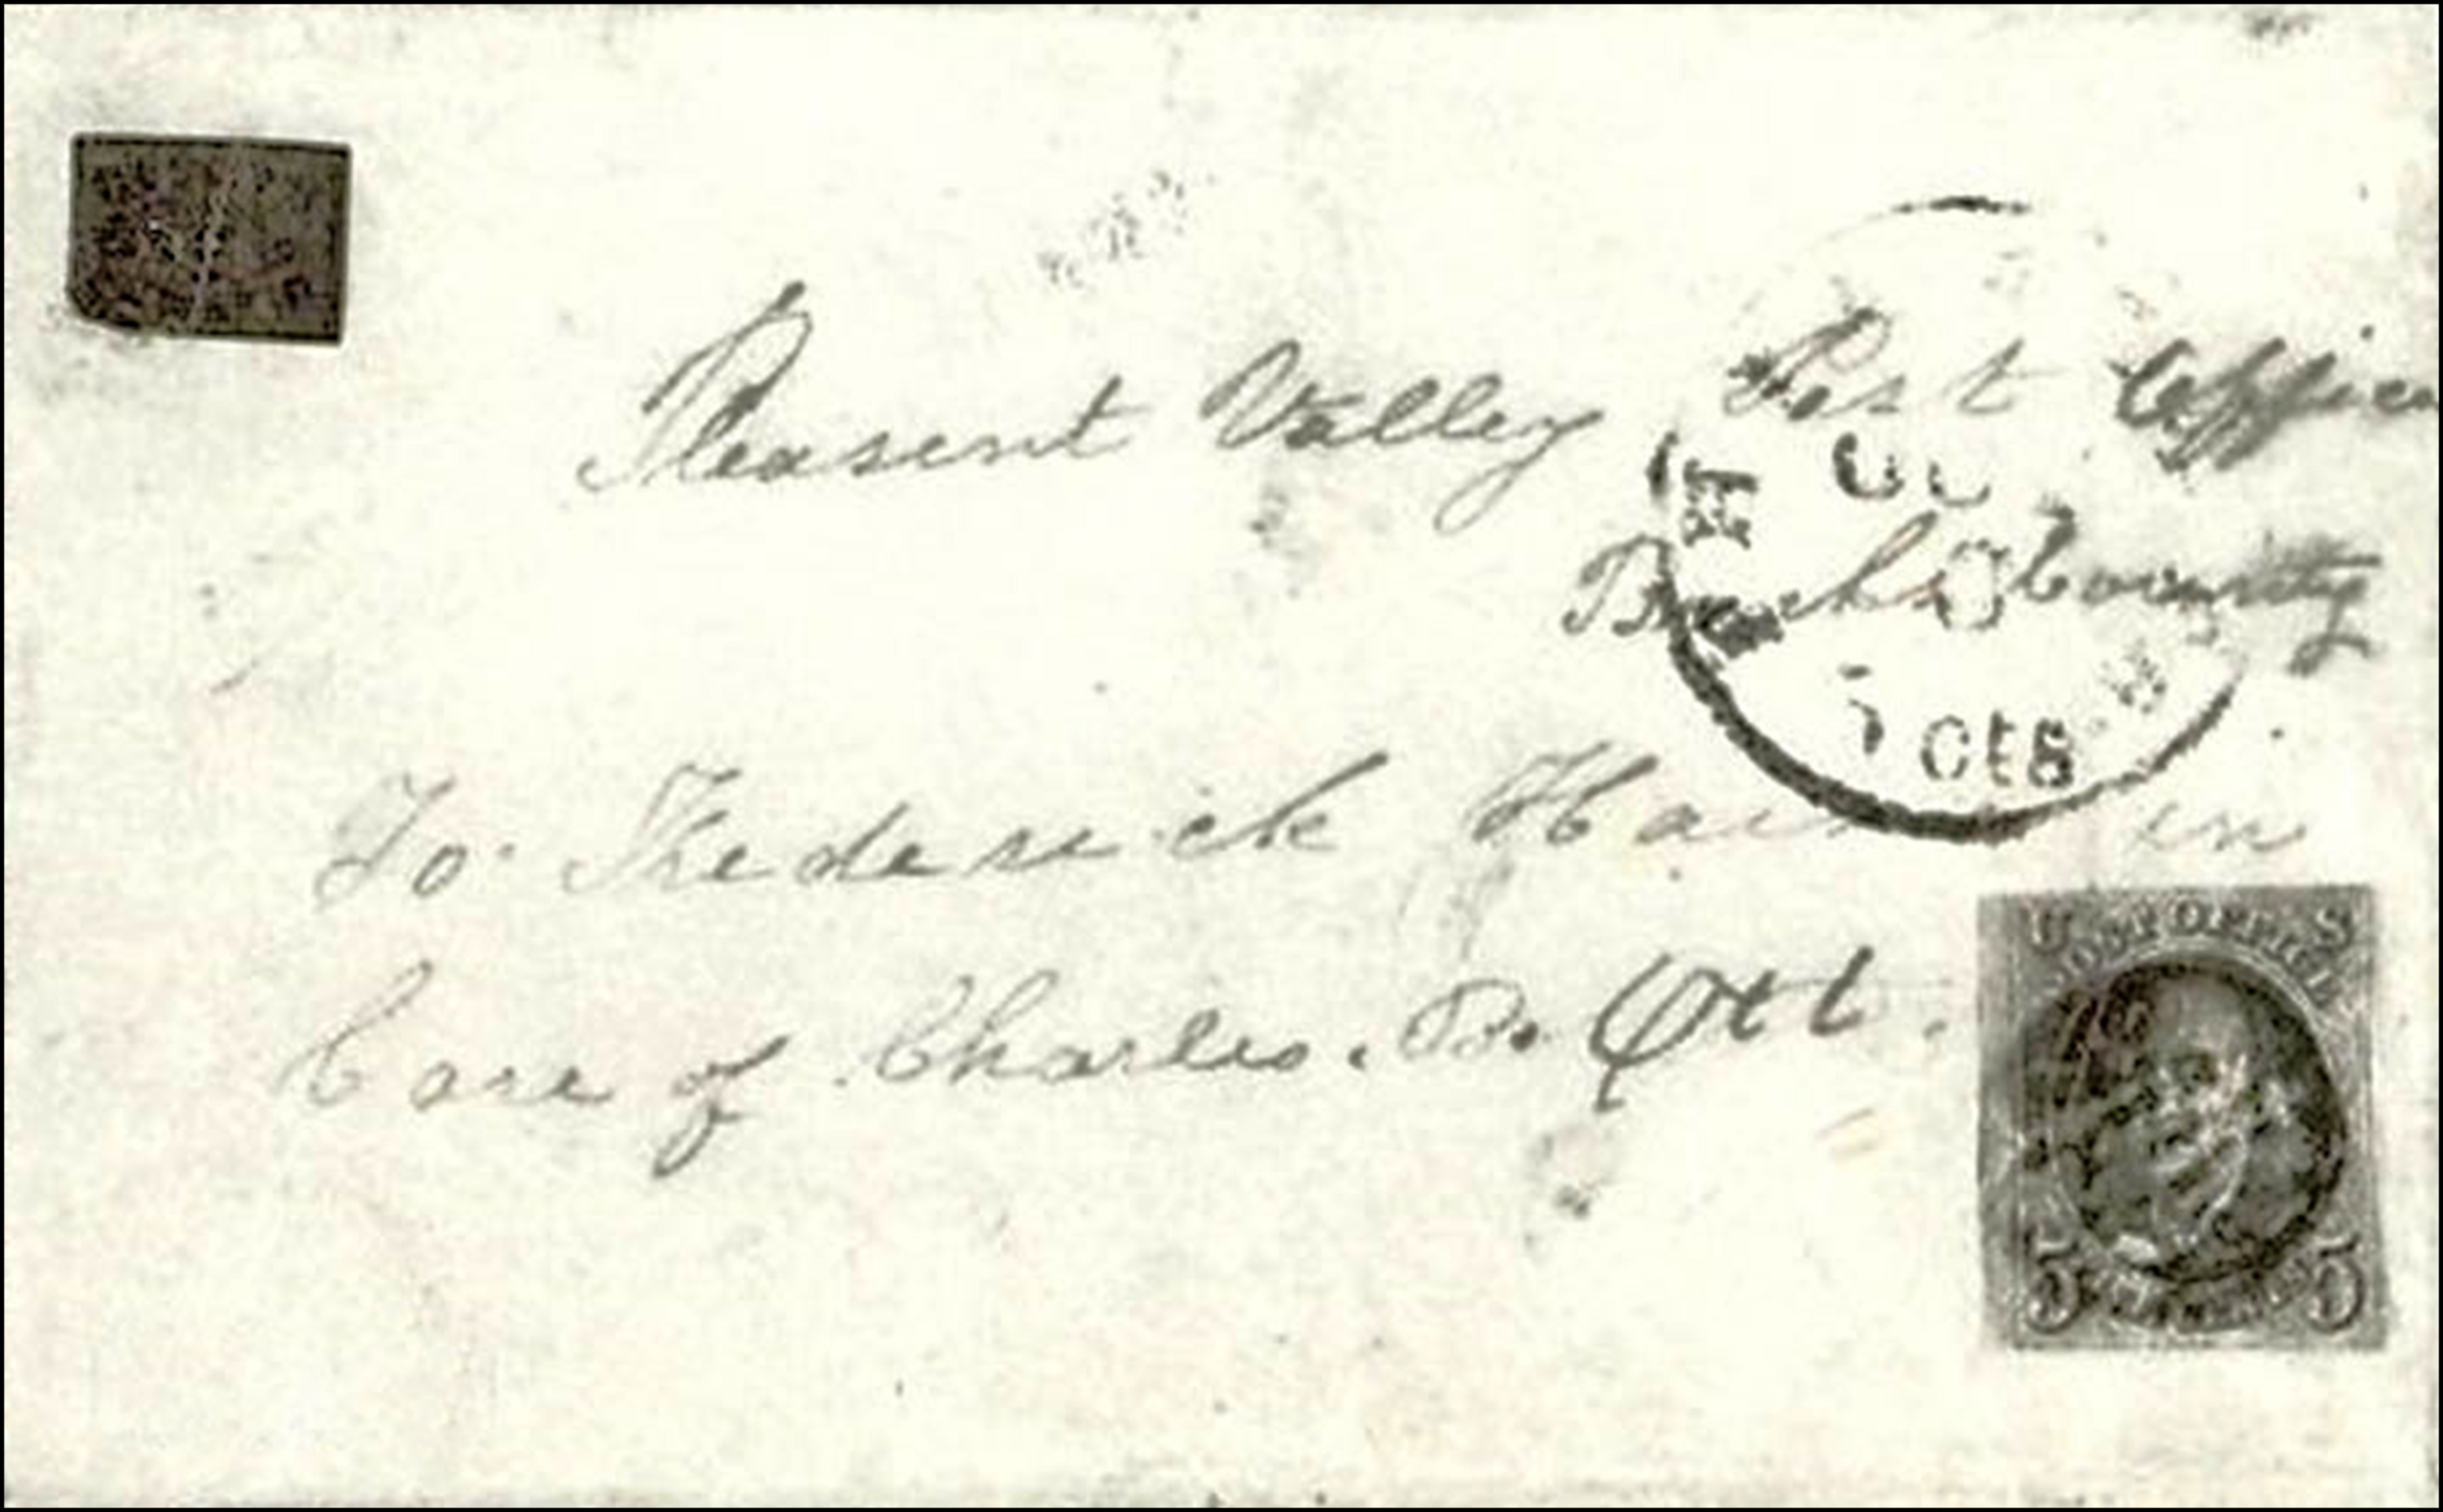 Pleasent Valley Post Office
Bucks County
5 Cts
To Frederick
Care of Charles. B. Ott.
U S
POST OFFICE
5 5